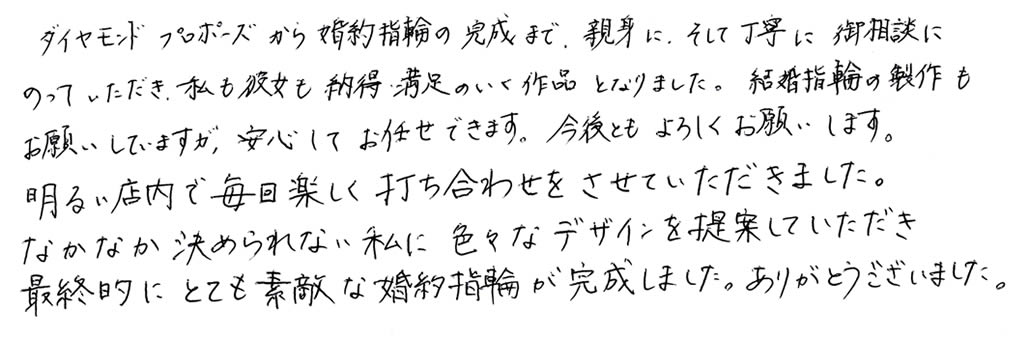 ダイヤモンドプロポーズから婚約指輪の完成まで、親身に、そして丁寧に御相談に
のっていただき、私も彼女も納得・満足のいく作品となりました。結婚指輪の製作も
お願いしていますが、安心してお任せできます。今後ともよろしくお願いします。
明るい店内で毎回楽しく打ち合わせをさせていただきました。
なかなか決められない私に色々なデザインを提案していただき
最終的にとても素敵な婚約指輪が完成しました。ありがとうございました。